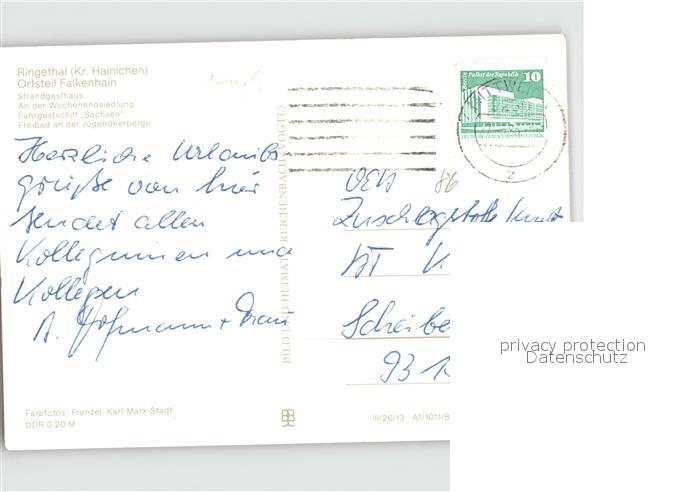 Ringethal (Kr. Hainichen)
Ortsteil Falkenhain
Strandgasthaus
An der Wochenendsiedlung
Fahrgastschiff „Sachsen“
Freibad an der Jugendherberge
Herzliche Urlaubs-
grüße von hier
sendet allen
Kolleginnen und
Kollegen
A. Hofmann + Frau
BILD UND HEIMAT REICHENBACH (VOGTL)
Berlin Palast der Republik
10
DEUTSCHE DEMOKRATISCHE REPUBLIK
MITTWEI
2
VEB 86
Zuschlagstoffe
BT K
Scheibe
93
privacy protection
Datenschutz
Farbfotos: Frenzel, Karl-Marx-Stadt
DDR 0,20 M
III/26/13 · A1/1011/8